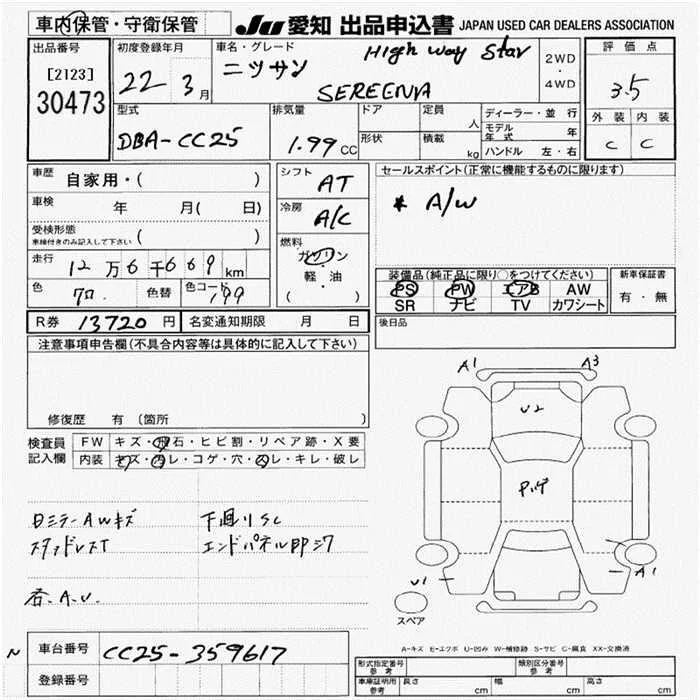 車内保管・守衛保管 JU 愛知 出品申込書 JAPAN USED CAR DEALERS ASSOCIATION
出品番号 初度登録年月 車名・グレード High way Star 2WD 評価点
[2123] 22年 3月 ニッサン ・ 3.5
30473 SEREENA 4WD
型式 排気量 ドア 定員 ディーラー・並行 外装 内装
DBA-CC25 1.99CC 人 モデル年式 年 C C
形状 積載 kg ハンドル 左・右
車歴 自家用・( ) シフト AT セールスポイント(正常に機能するものに限ります)
車検 年 月( 日) 冷房 A/C * A/W
受検形態
車検付きのみ記入して下さい ( )
走行 12万6千669km 燃料 ガソリン
軽・油
( )
色 色替 色コード 199
装備品(純正品に限り○をつけてください) 新車保証書
PS PW エアB AW 有・無
SR ナビ TV カワシート
R券 13720円 名変通知期限 月 日 後日品
注意事項申告欄(不具合内容等は具体的に記入して下さい)
修復歴 有 (箇所 )
検査員 FW キズ・飛石・ヒビ割・リペア跡・X要
記入欄 内装 キズ・汚レ・コゲ・穴・スレ・キレ・破レ
A1 A3
U2
P.ハゲ
U1 A1
スペア
日ミラーAWキズ 下廻りSC
スタッドレスT エンドパネル部シワ
各.A.U.
A-キズ E-エクボ U-凹み W-補修跡 S-サビ C-腐食 XX-交換済
N 車台番号 CC25-359617
登録番号
形式指定番号 参考 類別区分番号 参考
車庫証明用 参考 長さ cm 幅 cm 高さ cm